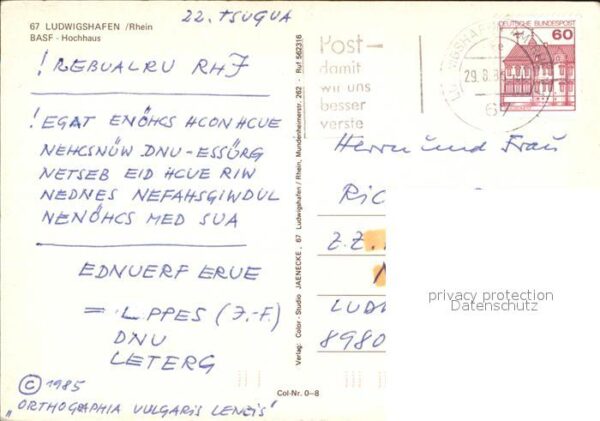 67 LUDWIGSHAFEN /Rhein
BASF - Hochhaus
22. TSUGUA
! REBUALRU RHJ
! EGAT ENÖHCS HCON HCUE
NEHCSNÜW DNU-ESSÜRG
NETSEB EID HCUE RIW
NEDNES NEFAHSGIWDUL
NENÖHCS MED SUA
EDNUERF ERUE
= L.PPES (J.-F.)
DNU
LETERG
© 1985
"ORTHOGRAPHIA VULGARIS LENZIS"
Verlag: Color - Studio JAENECKE, 67 Ludwigshafen / Rhein, Mundenheimerstr. 262 - Ruf 562316
Col-Nr. 0-8
Post-
damit
wir uns
besser
verste
29.8.8
67
DEUTSCHE BUNDESPOST
60
Herrn und Frau
RIC
Z.Z.
LUDW
8980
privacy protection
Datenschutz